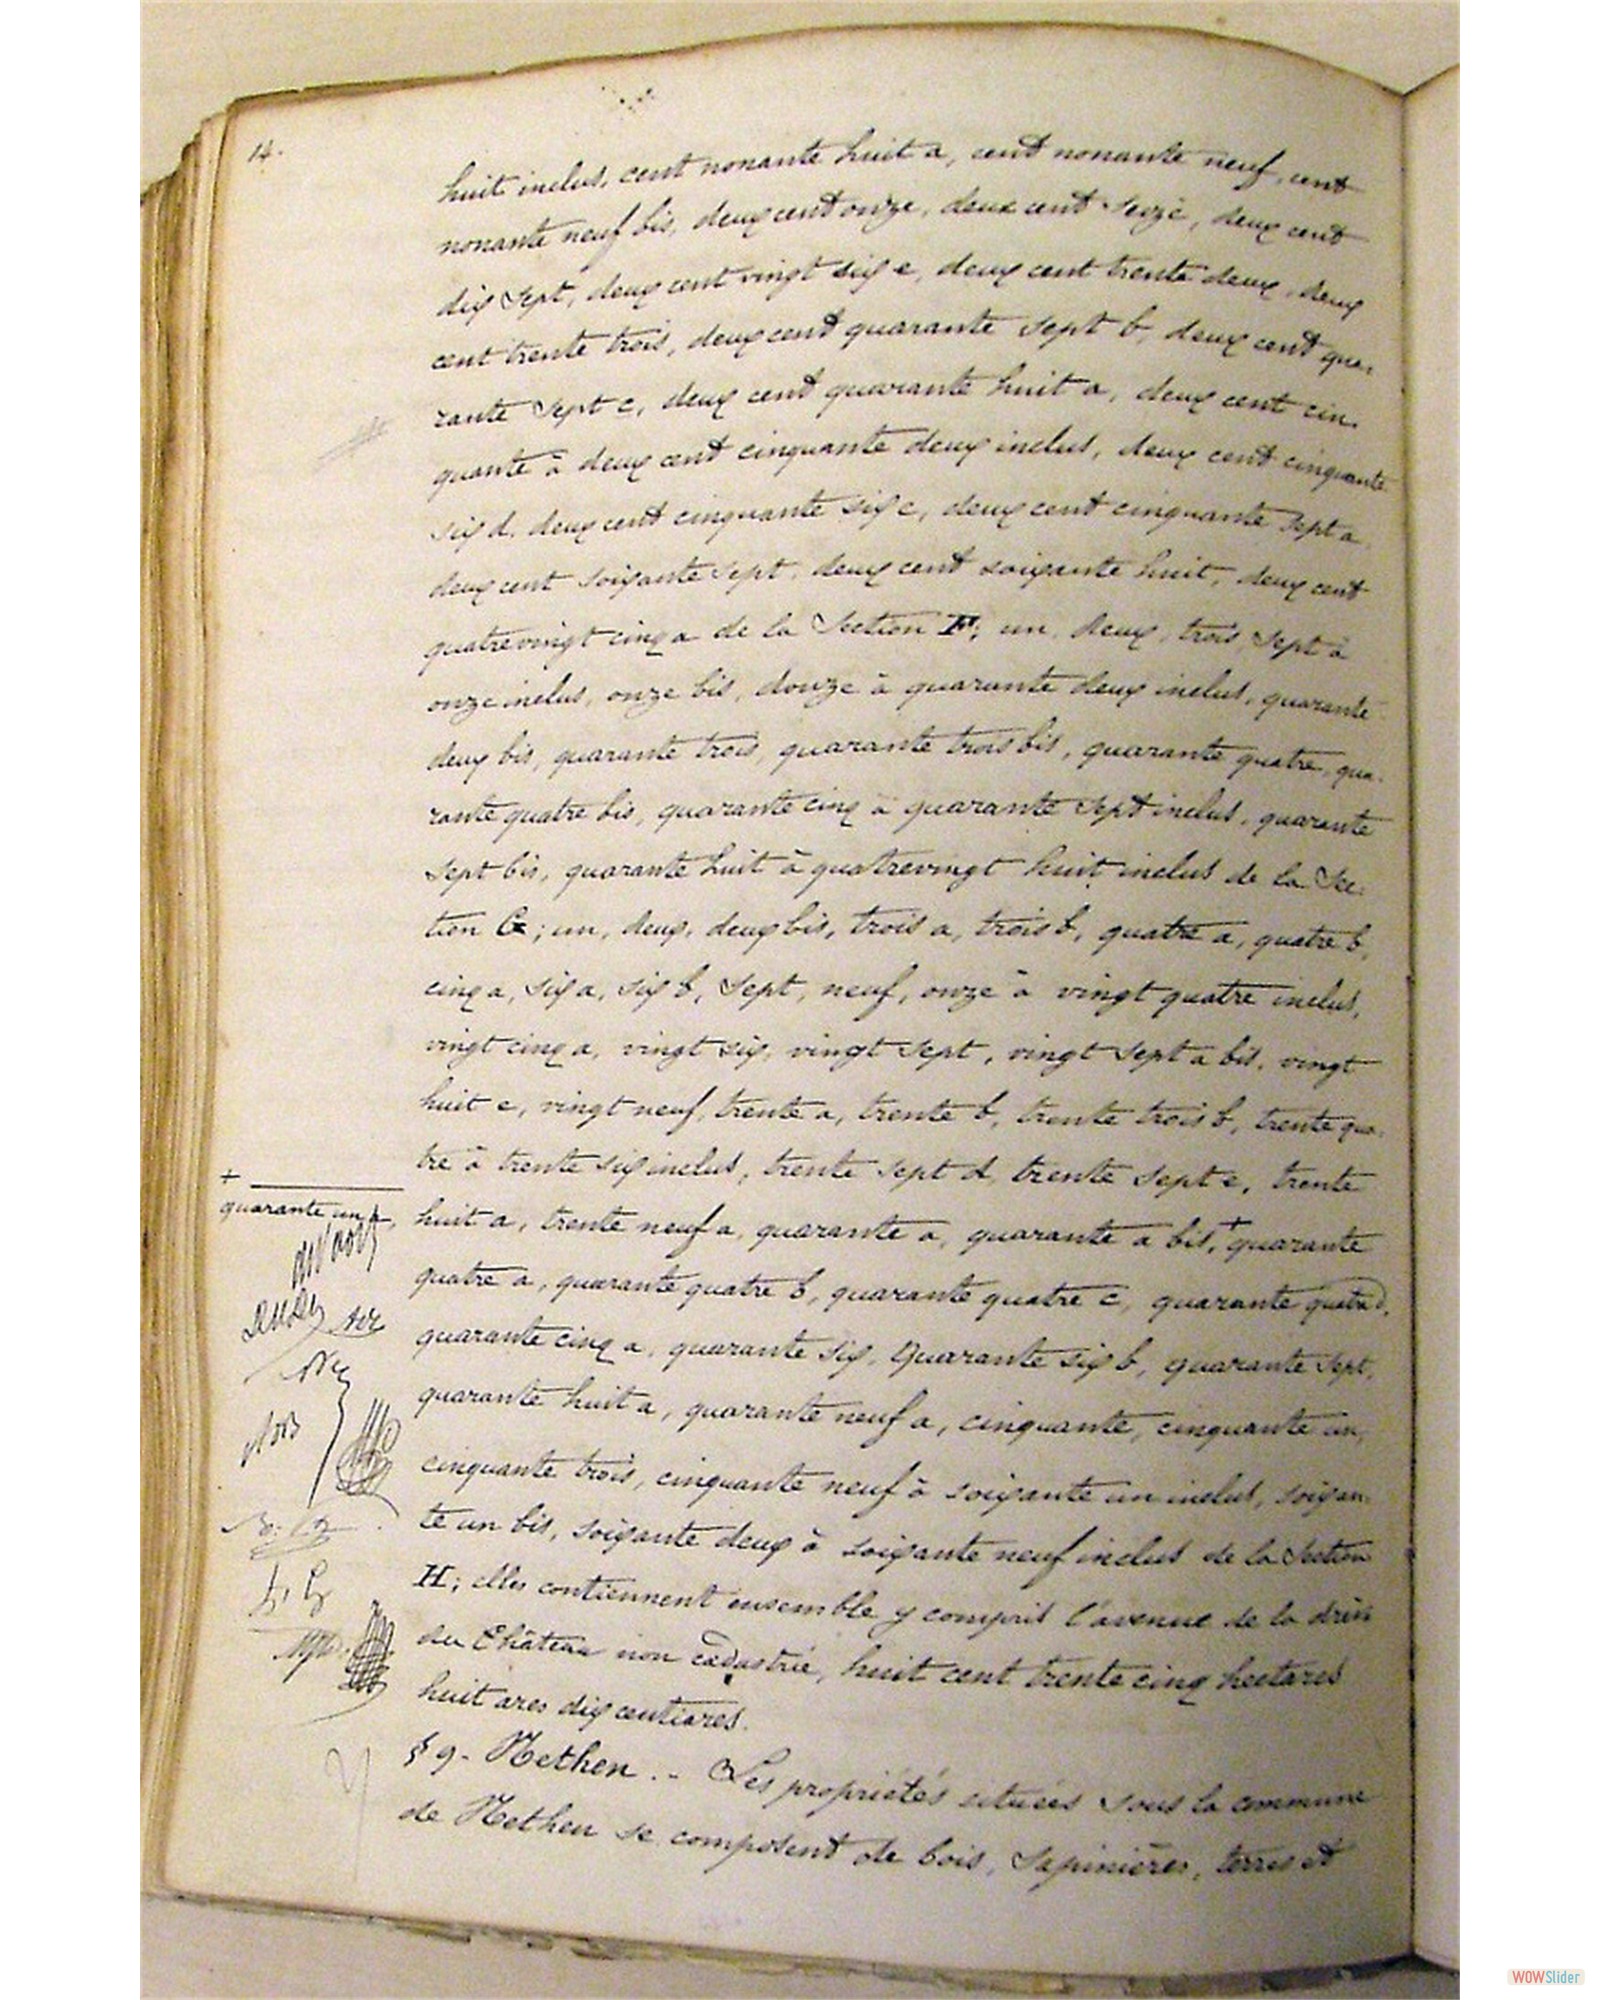 14.
huit inclus, cent nonante huit a, cent nonante neuf, cent
nonante neuf bis, deux cent onze, deux cent seize, deux cent
dix sept, deux cent vingt six e, deux cent trente deux, deux
cent trente trois, deux cent quarante sept b, deux cent qua-
rante sept c, deux cent quarante huit a, deux cent cin-
quante à deux cent cinquante deux inclus, deux cent cinquante
six d, deux cent cinquante six c, deux cent cinquante sept a,
deux cent soixante sept, deux cent soixante huit, deux cent
quatrevingt cinq a de la Section F; un, deux, trois, sept à
onze inclus, onze bis, douze à quarante deux inclus, quarante
deux bis, quarante trois, quarante trois bis, quarante quatre, qua-
rante quatre bis, quarante cinq à quarante sept inclus, quarante
sept bis, quarante huit à quatrevingt huit inclus de la Sec-
tion G; un, deux, deux bis, trois a, trois b, quatre a, quatre b,
cinq a, six a, six b, sept, neuf, onze à vingt quatre inclus,
vingt cinq a, vingt six, vingt sept, vingt sept a bis, vingt
huit c, vingt neuf, trente a, trente b, trente trois b, trente qua-
tre à trente six inclus, trente sept d, trente sept e, trente
+
quarante un a,
huit a, trente neuf a, quarante a, quarante a bis,+ quarante
quatre a, quarante quatre b, quarante quatre c, quarante quatre d,
quarante cinq a, quarante six, Quarante six b, quarante sept,
quarante huit a, quarante neuf a, cinquante, cinquante un,
cinquante trois, cinquante neuf à soixante un inclus, soixan-
te un bis, soixante deux à soixante neuf inclus de la Section
H; elles contiennent ensemble y compris l'avenue de la
du Château non cadastrée, huit cent trente cinq hectares
huit ares dix centiares.
§ 9. Nethen. - Les propriétés situées sous la commune
de Nethen se composent de bois, Sapinières, terres et
WOWSlider